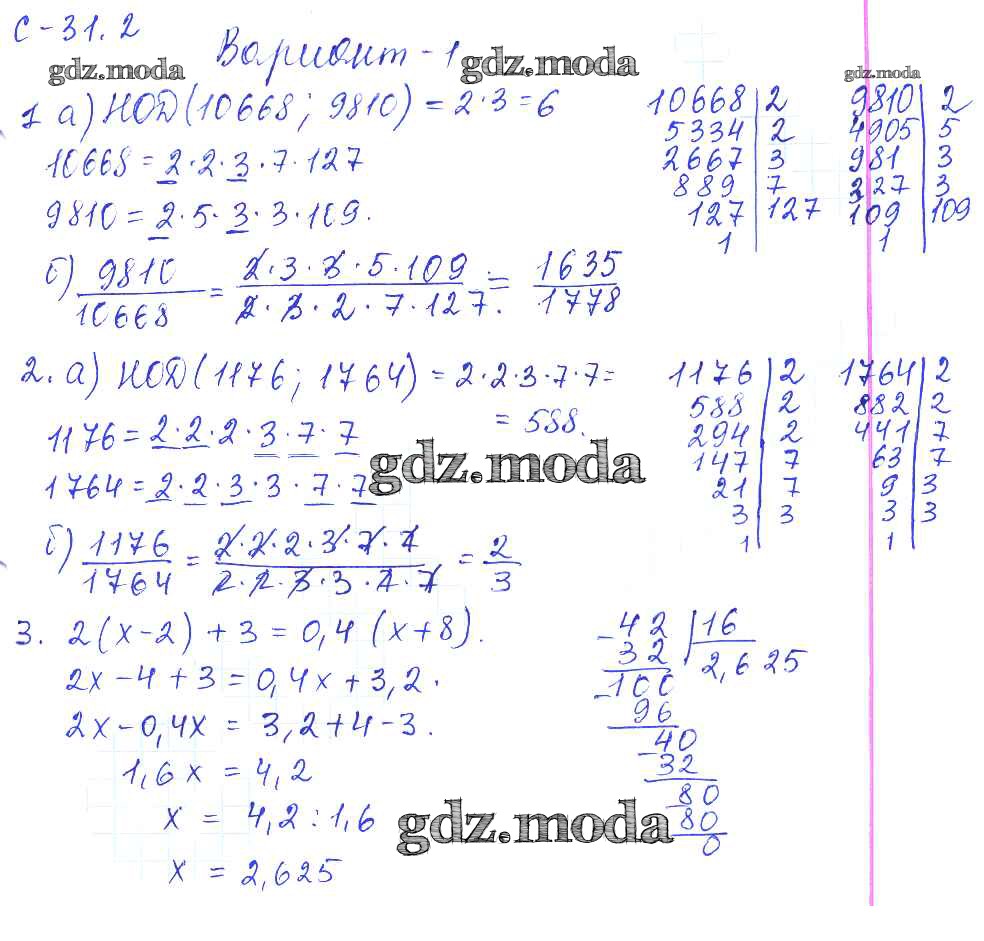 С-31.2
Вариант-1
gdz.moda
gdz.moda
gdz.moda
1 а) НОД(10668; 9810) = 2·3 = 6
10668 = 2·2·3·7·127
9810 = 2·5·3·3·109.
10668 | 2
5334 | 2
2667 | 3
889 | 7
127 | 127
1
9810 | 2
4905 | 5
981 | 3
327 | 3
109 | 109
1
б) 9810/10668 = 2·3·3·5·109/2·3·2·7·127. = 1635/1778
2. а) НОД(1176; 1764) = 2·2·3·7·7=
= 588.
1176 = 2·2·2·3·7·7
1764 = 2·2·3·3·7·7
gdz.moda
1176 | 2
588 | 2
294 | 2
147 | 7
21 | 7
3 | 3
1
1764 | 2
882 | 2
441 | 7
63 | 7
9 | 3
3 | 3
1
б) 1176/1764 = 2·2·2·3·7·7/2·2·3·3·7·7 = 2/3
3. 2(x-2) + 3 = 0,4 (x+8).
2x - 4 + 3 = 0,4x + 3,2.
2x - 0,4x = 3,2 + 4 - 3.
1,6x = 4,2
x = 4,2 : 1,6
x = 2,625
gdz.moda
-42 | 16
32 | 2,625
-100
96
-40
32
-80
80
0